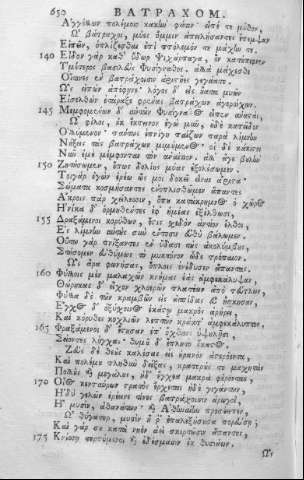 650 ΒΑΤΡΑΧΟΜ.
Ἀγγέλλων πολέμοιο κακὴν φάτιν· εἶπέ τε μῦθον,
Ὦ βάτραχοι, μύες ὔμμιν ἀπειλήσαντες ἔπεμψαν
Εἰπεῖν, ὁπλίζεσθαι ἐπὶ πτόλεμόν τε μάχην τε.
140 Εἶδον γὰρ καθ' ὕδωρ Ψιχάρπαγα, ὃν κατέπεφνεν
Ὑμέτερος βασιλεὺς Φυσίγναθος. ἀλλὰ μάχεσθε
Οἵτινες ἐν βατράχοισιν ἀριστῆες γεγάατε.
Ὣς εἰπὼν ἀπέφηνε· λόγος δ' εἰς ὦτα μυῶν
Εἰσελθὼν ἐτάραξε φρένας βατράχων ἀγερώχων.
145 Μεμφομένων δ' αὐτῶν Φυσίγναθος εἶπεν ἀναστάς,
Ὦ φίλοι, οὐκ ἔκτεινον ἐγὼ μῦν, οὐδὲ κατεῖδον
Ὀλλύμενον· πάντως ἐπνίγη παίζων παρὰ λίμνην
Νήξεις τὰς βατράχων μιμούμενος· οἱ δὲ κάκιστοι
Νῦν ἐμὲ μέμφονται τὸν ἀναίτιον. ἀλλ' ἄγε βουλὴν
150 Ζητήσωμεν, ὅπως δολίους μύας ἐξολέσωμεν.
Τοιγὰρ ἐγὼν ἐρέω ὥς μοι δοκεῖ εἶναι ἄριστα.
Σώματα κοσμήσαντες ἐν ὅπλοις στῶμεν ἅπαντες
Ἄκροις πὰρ χείλεσσιν, ὅπου κατάκρημνος ὁ χῶρος·
Ἡνίκα δ' ὁρμηθέντες ἐφ' ἡμέας ἐξέλθωσι,
155 Δραξάμενοι κορύθων, ὅστις σχεδὸν ἀντίον ἔλθοι,
Ἐς λίμνην αὐτοὺς σὺν ἔντεσιν εὐθὺ βάλωμεν.
Οὕτω γὰρ πνίξαντες ἐν ὕδασι τοὺς ἀκολύμβους,
Στήσομεν εὐθύμως τὸ μυοκτόνον ὧδε τρόπαιον.
Ὣς ἄρα φωνήσας, ὅπλοις ἐνέδυσεν ἅπαντας.
160 Φύλλοις μὲν μαλαχῶν κνήμας ἑὰς ἀμφεκάλυψαν,
Θώρηκας δ' εἶχον χλοερῶν πλατέων ἀπὸ σεύτλων,
Φύλλα δὲ τῶν κραμβῶν εἰς ἀσπίδας εὖ ἤσκησαν,
Ἔγχος δ' ὀξύσχοινος ἑκάστῳ μακρὸς ἀρήρει,
Καὶ κόρυθες κοχλιῶν λεπτῶν κράατ' ἀμφεκάλυπτον.
165 Φραξάμενοι δ' ἔστησαν ἐπ' ὄχθαις ὑψηλῇσι,
Σείοντες λόγχας· θυμοῦ δ' ἔπλητο ἕκαστος.
Ζεὺς δὲ θεοὺς καλέσας εἰς οὐρανὸν ἀστερόεντα,
Καὶ πολέμου πληθὺν δείξας, κρατερούς τε μαχητὰς
Πολλοὺς ἢ μεγάλους, ἠδ' ἔγχεα μακρὰ φέροντας,
170 Οἷος κενταύρων στρατὸς ἔρχεται ἠδὲ γιγάντων,
Ἡδὺ γελῶν ἐρέεινε τίνες βατράχοισιν ἀρωγοὶ,
Ἢ μυσὶν, ἀθανάτων· καὶ Ἀθηναίην προσέειπεν,
Ὦ θύγατερ, μυσὶν ἦ ῥ' ἐπαλεξήσουσα πορεύσῃ;
Καὶ γὰρ σου κατὰ νηὸν ἀεὶ σκιρτῶσιν ἅπαντες,
175 Κνίσσῃ τερπόμενοι καὶ ἐδέσμασιν ἐκ θυσιάων.
Ὣς